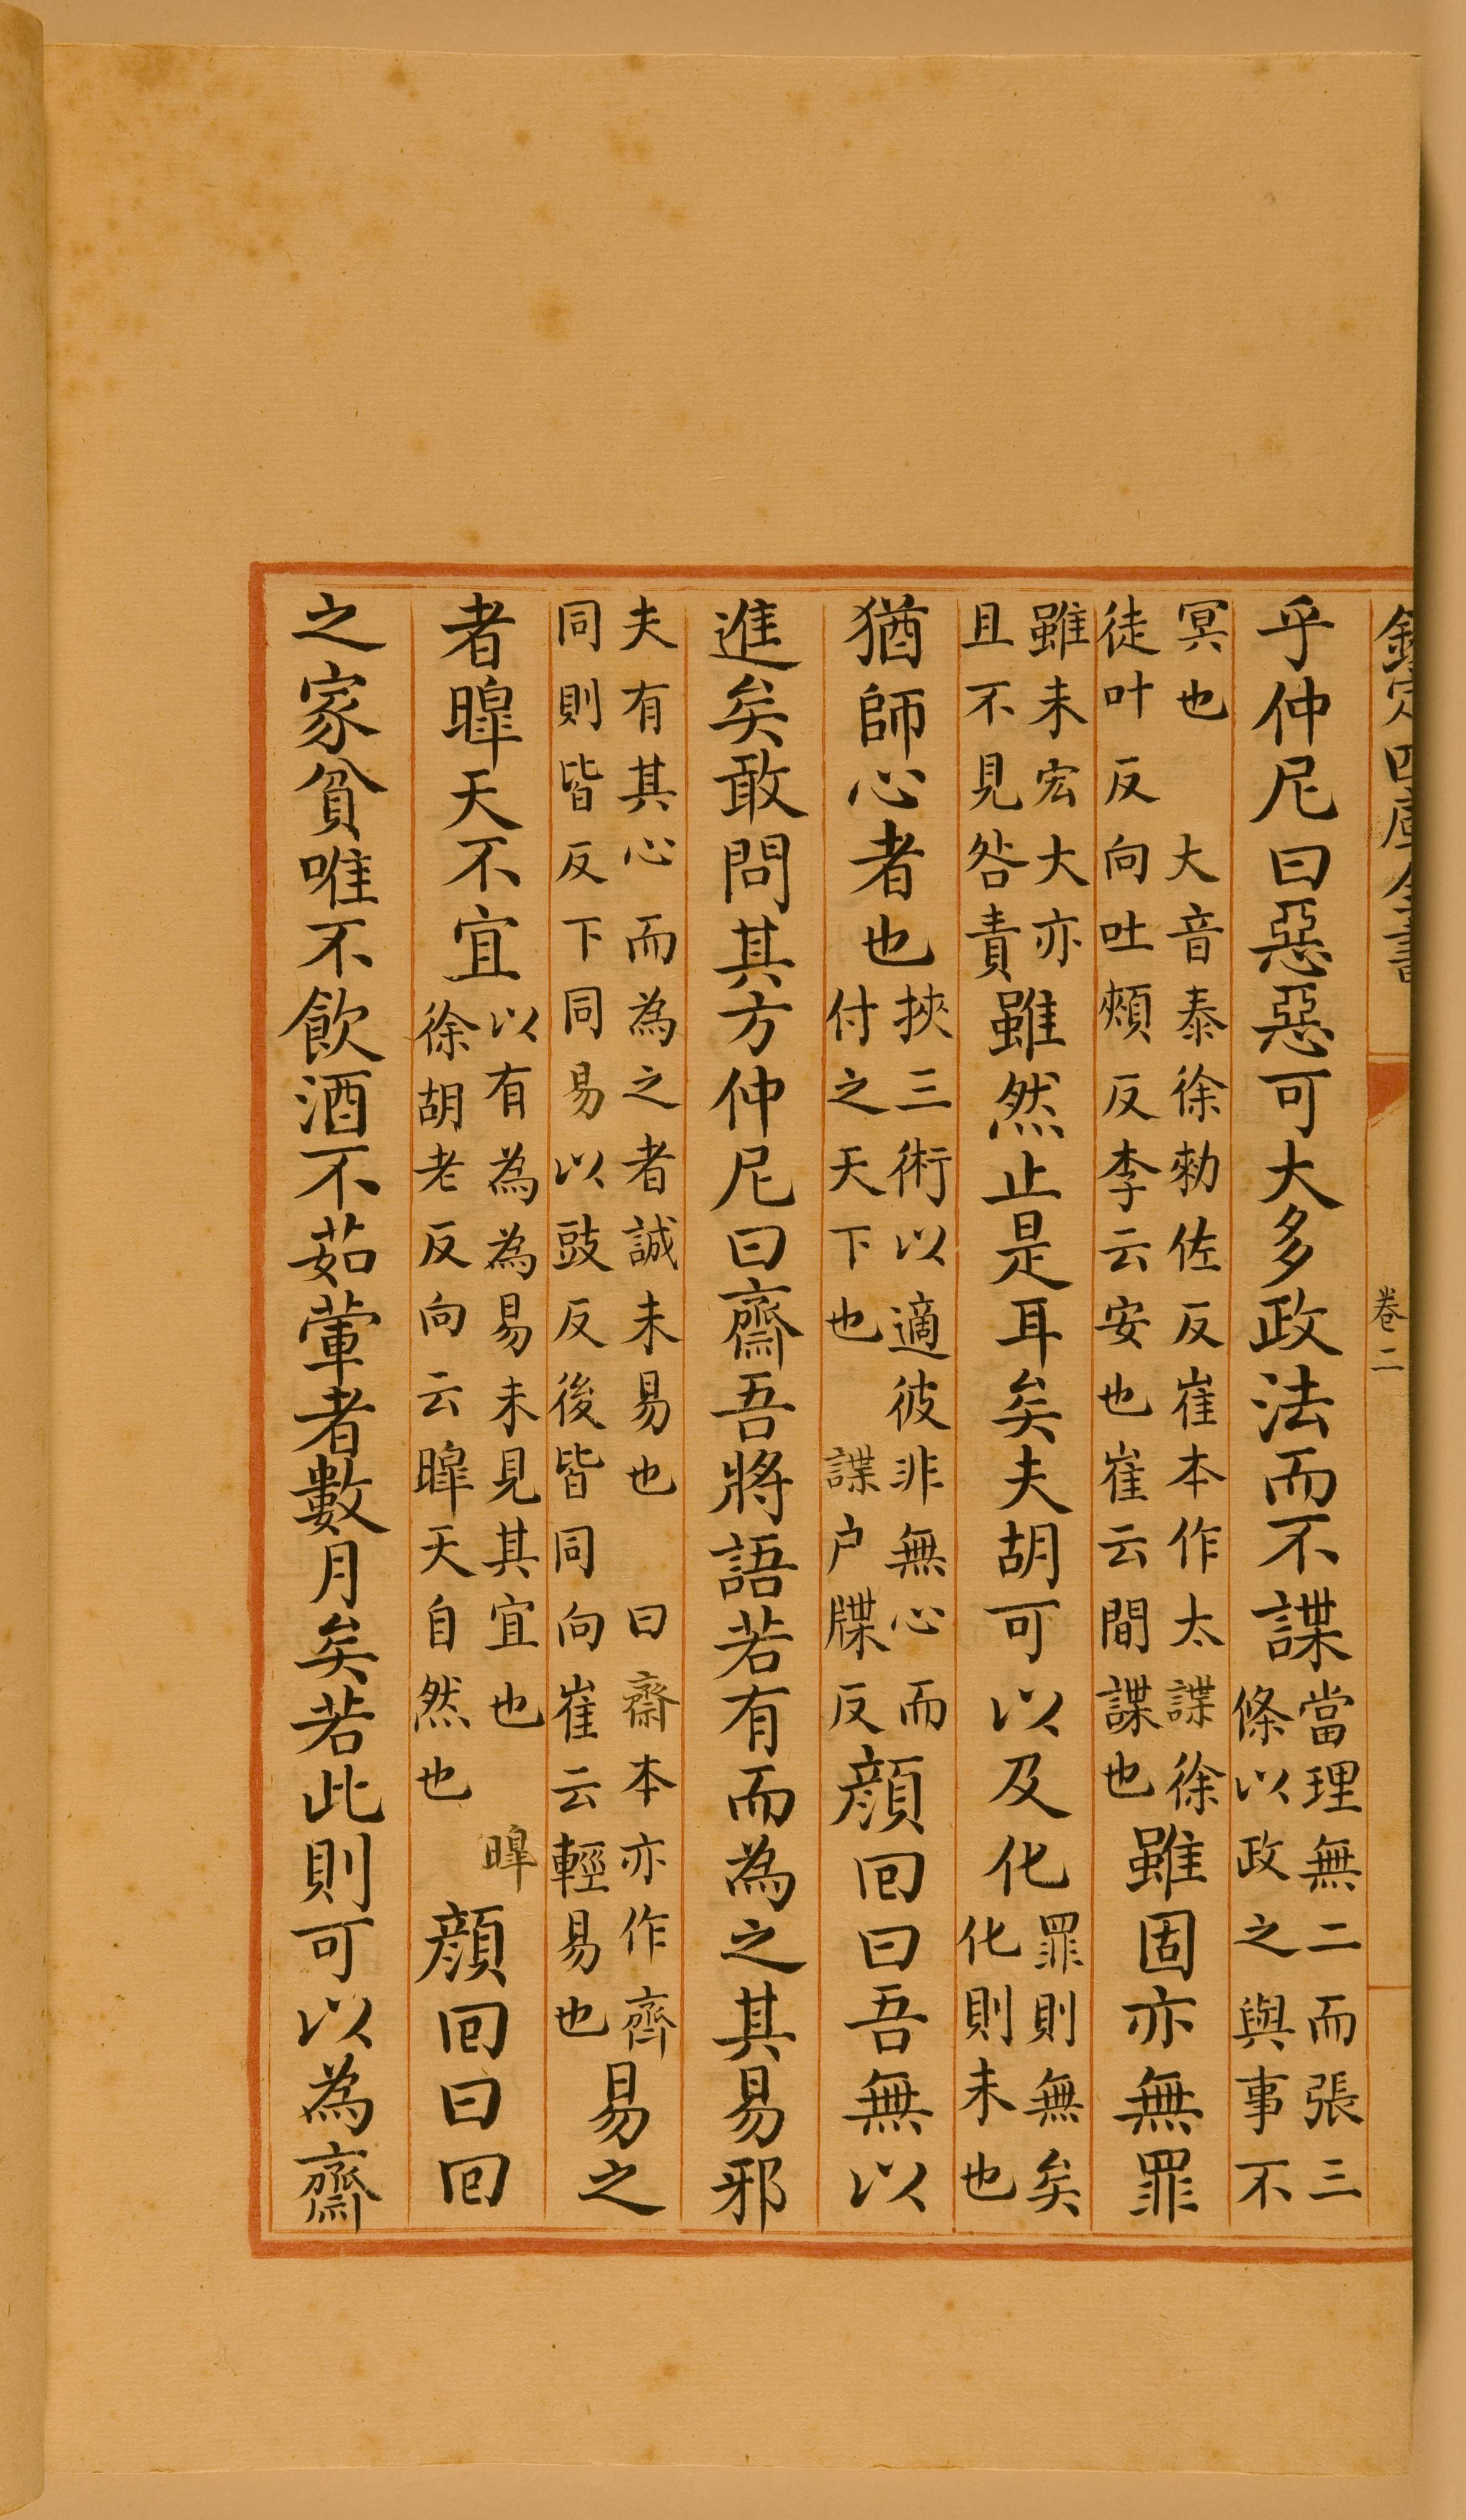 欽定四庫全書
卷二
乎仲尼曰惡惡可大多政法而不諜當理無二而張三條以政之與事不
冥也　大音泰徐勑佐反崔本作太諜徐徒叶反向吐頰反李云安也崔云間諜也雖固亦無罪
雖未宏大亦且不見咎責雖然止是耳矣夫胡可以及化罪則無矣化則未也
猶師心者也挾三術以適彼非無心而付之天下也　諜户牒反顔囘曰吾無以
進矣敢問其方仲尼曰齋吾將語若有而為之其易邪
夫有其心而為之者誠未易也　曰齋本亦作齊同則皆反下同易以豉反後皆同向崔云輕易也易之
者暭天不宜以有為為易未見其宜也　暭徐胡老反向云暭天自然也顔囘曰囘
之家貧唯不飲酒不茹葷者數月矣若此則可以為齋